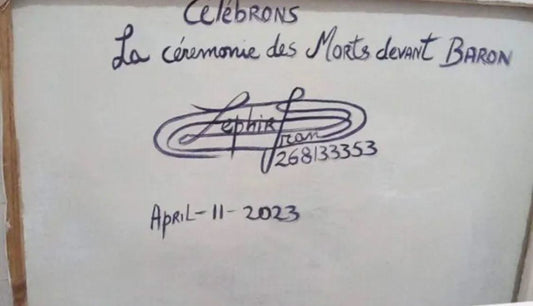 Celébrons
La céremonie des Morts devant BARON
Zephirfran
268133353
APRIL-11-2023